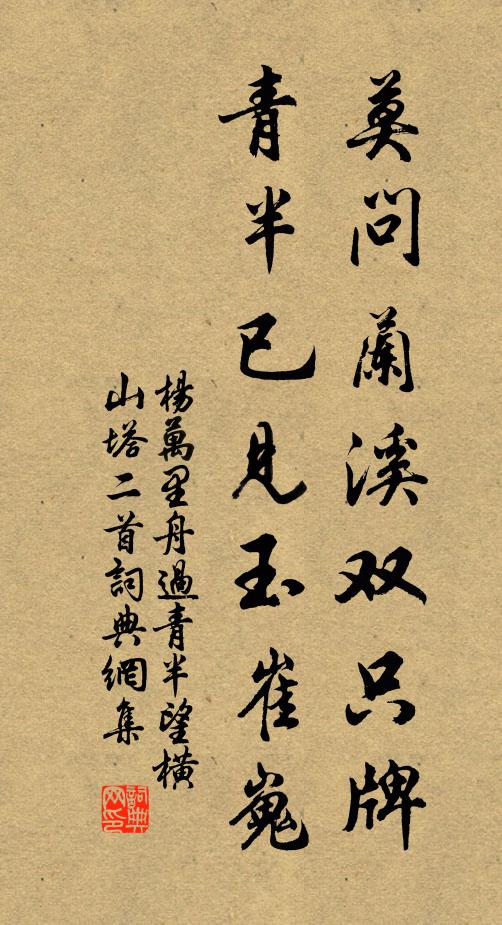 莫問蘭溪双只牌
青半已見玉崔嵬
楊萬里舟過青半望橫
山塔二首詞典網集
詞典網印